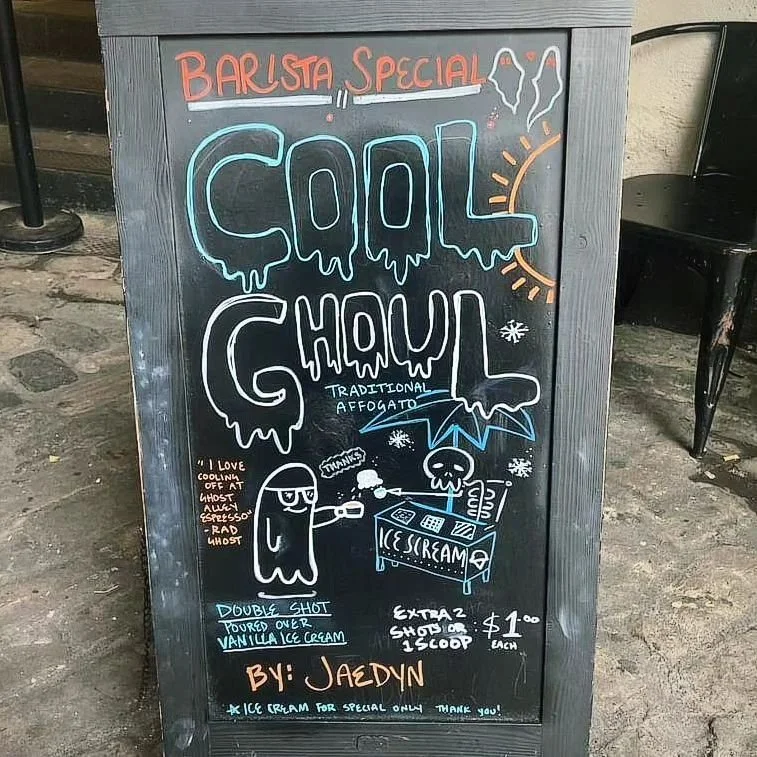 BARISTA SPECIAL
COOL
GHOUL
TRADITIONAL
AFFOGATO
"I LOVE
COOLING
OFF AT
GHOST
ALLEY
ESPRESSO"
- RAD
GHOST
THANKS
ICE SCREAM
DOUBLE SHOT
POURED OVER
VANILLA ICE CREAM
EXTRA 2
SHOTS OR
1 SCOOP
$1.00
EACH
BY: JAEDYN
☆ ICE CREAM FOR SPECIAL ONLY THANK YOU!